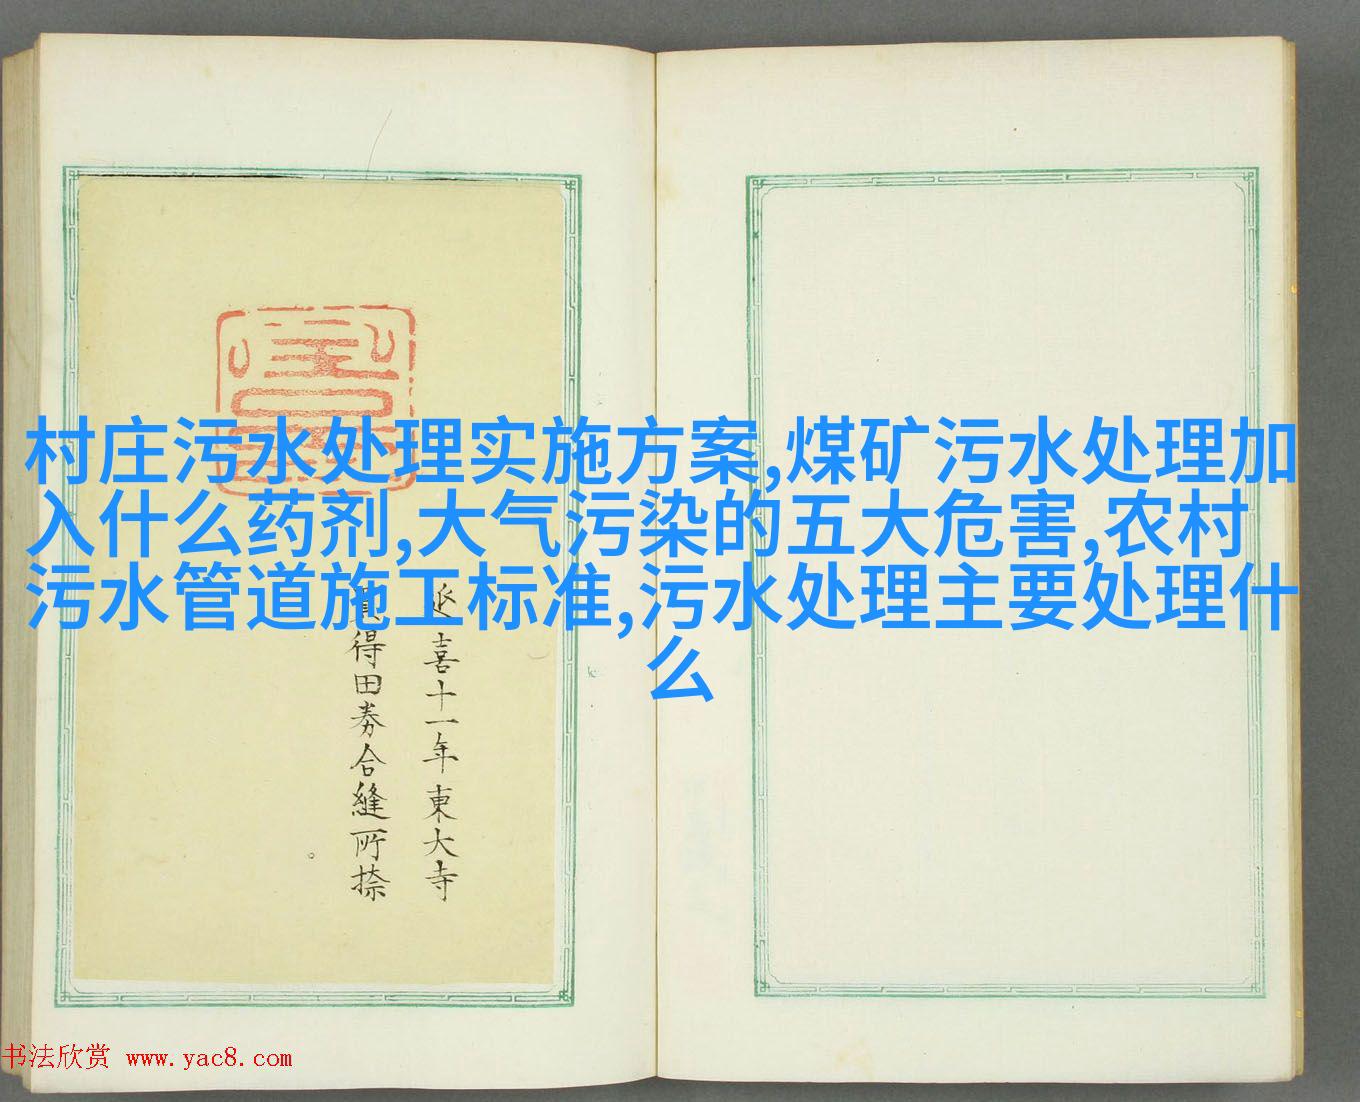 村庄污水处理实施方案,煤矿污水处理加
入什么药剂,大气污染的五大危害,农村
污水管道施工标准,污水处理主要处理什
么
延喜十一年東大寺
得田券合縫所捺
书法欣赏 www.yac8.com